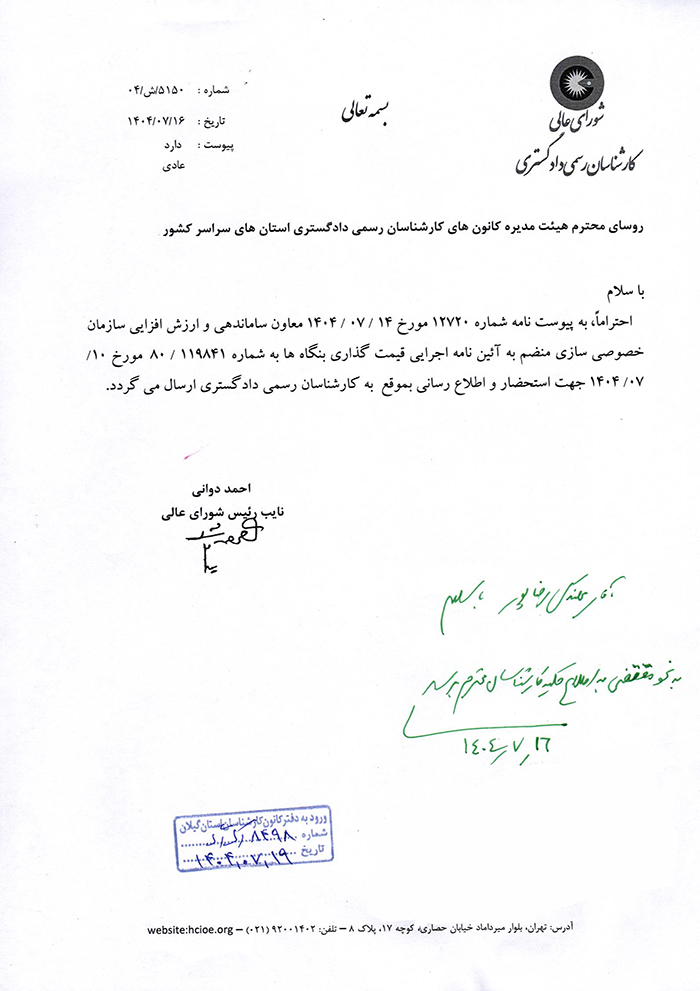 شورای عالی
کارشناسان رسمی دادگستری
بسمه تعالی
شماره : ۵۱۵۰/ش/۰۴
تاریخ : ۱۴۰۴/۰۷/۱۶
پیوست : دارد
عادی
روسای محترم هیئت مدیره کانون های کارشناسان رسمی دادگستری استان های سراسر کشور
با سلام
احتراماً، به پیوست نامه شماره ۱۲۷۲۰ مورخ ۱۴ / ۰۷ / ۱۴۰۴ معاون ساماندهی و ارزش افزایی سازمان
خصوصی سازی منضم به آئین نامه اجرایی قیمت گذاری بنگاه ها به شماره ۱۱۹۸۴۱ / ۸۰ مورخ ۱۰/
۰۷/ ۱۴۰۴ جهت استحضار و اطلاع رسانی بموقع به کارشناسان رسمی دادگستری ارسال می گردد.
احمد دوانی
نایب رئیس شورای عالی
آقای مهندس رضاپور با سلام
به نحو مقتضی به اطلاع کلیه کارشناسان محترم برسد
۱۴۰۴/۷/۱۶
ورود به دفتر کانون کارشناسان استان گیلان
شماره ۸۴۹۸
تاریخ ۱۴۰۴,۰۷,۱۹
آدرس: تهران، بلوار میرداماد خیابان حصاری، کوچه ۱۷، پلاک ۸ – تلفن: ۹۲۰۰۱۴۰۲ (۰۲۱) – website:hcioe.org